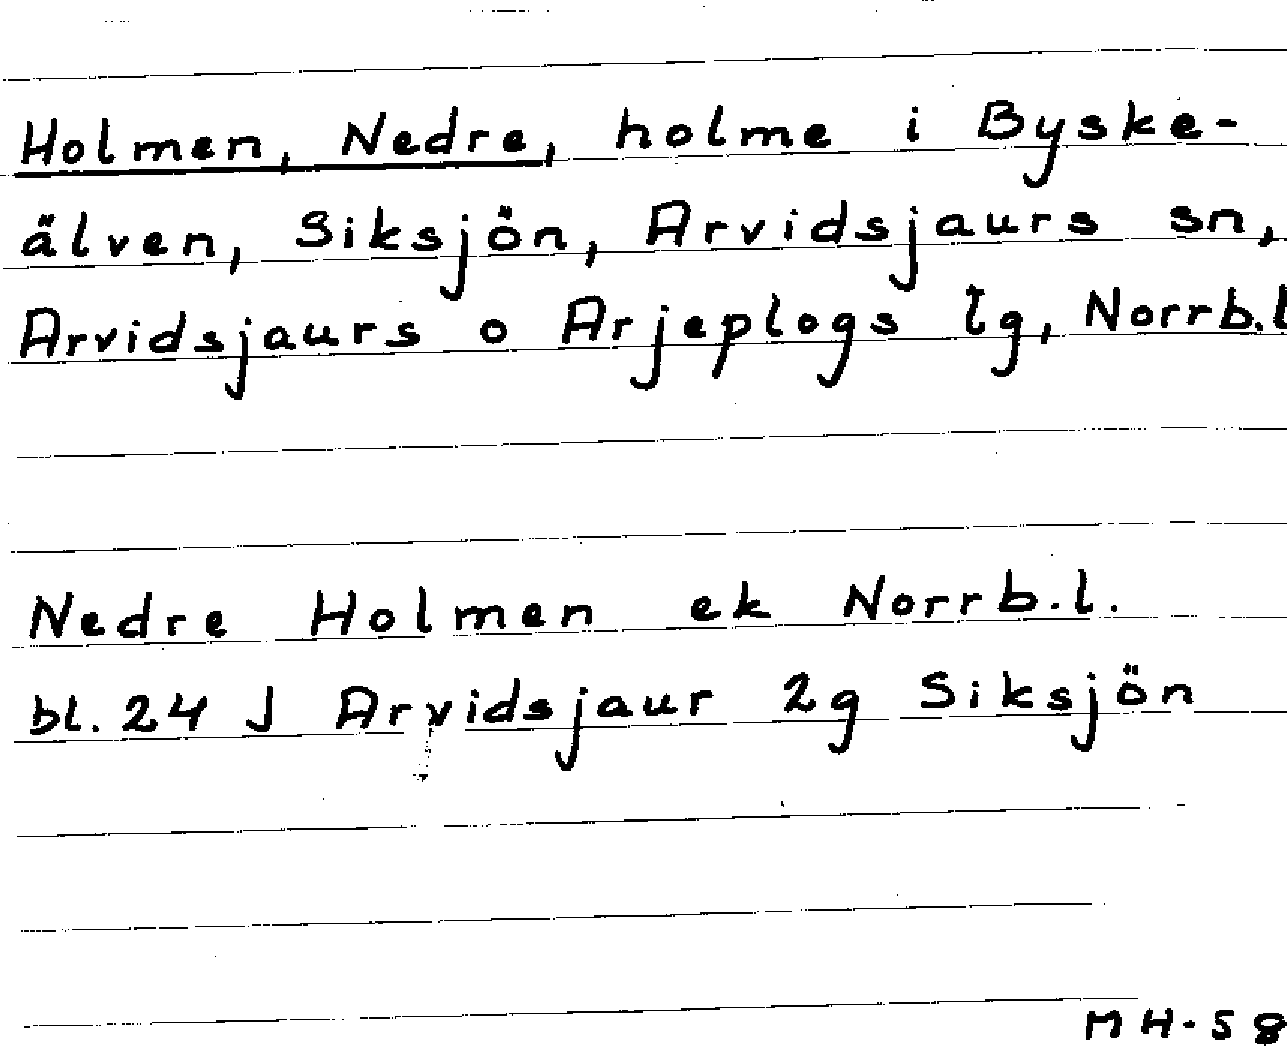 Holmen, Nedre, holme i Byske-
älven, Siksjön, Arvidsjaurs sn,
Arvidsjaurs o Arjeplogs tg, Norrb.l
Nedre Holmen ek Norrb.l.
bl. 24 J Arvidsjaur 2g Siksjön
MH-58